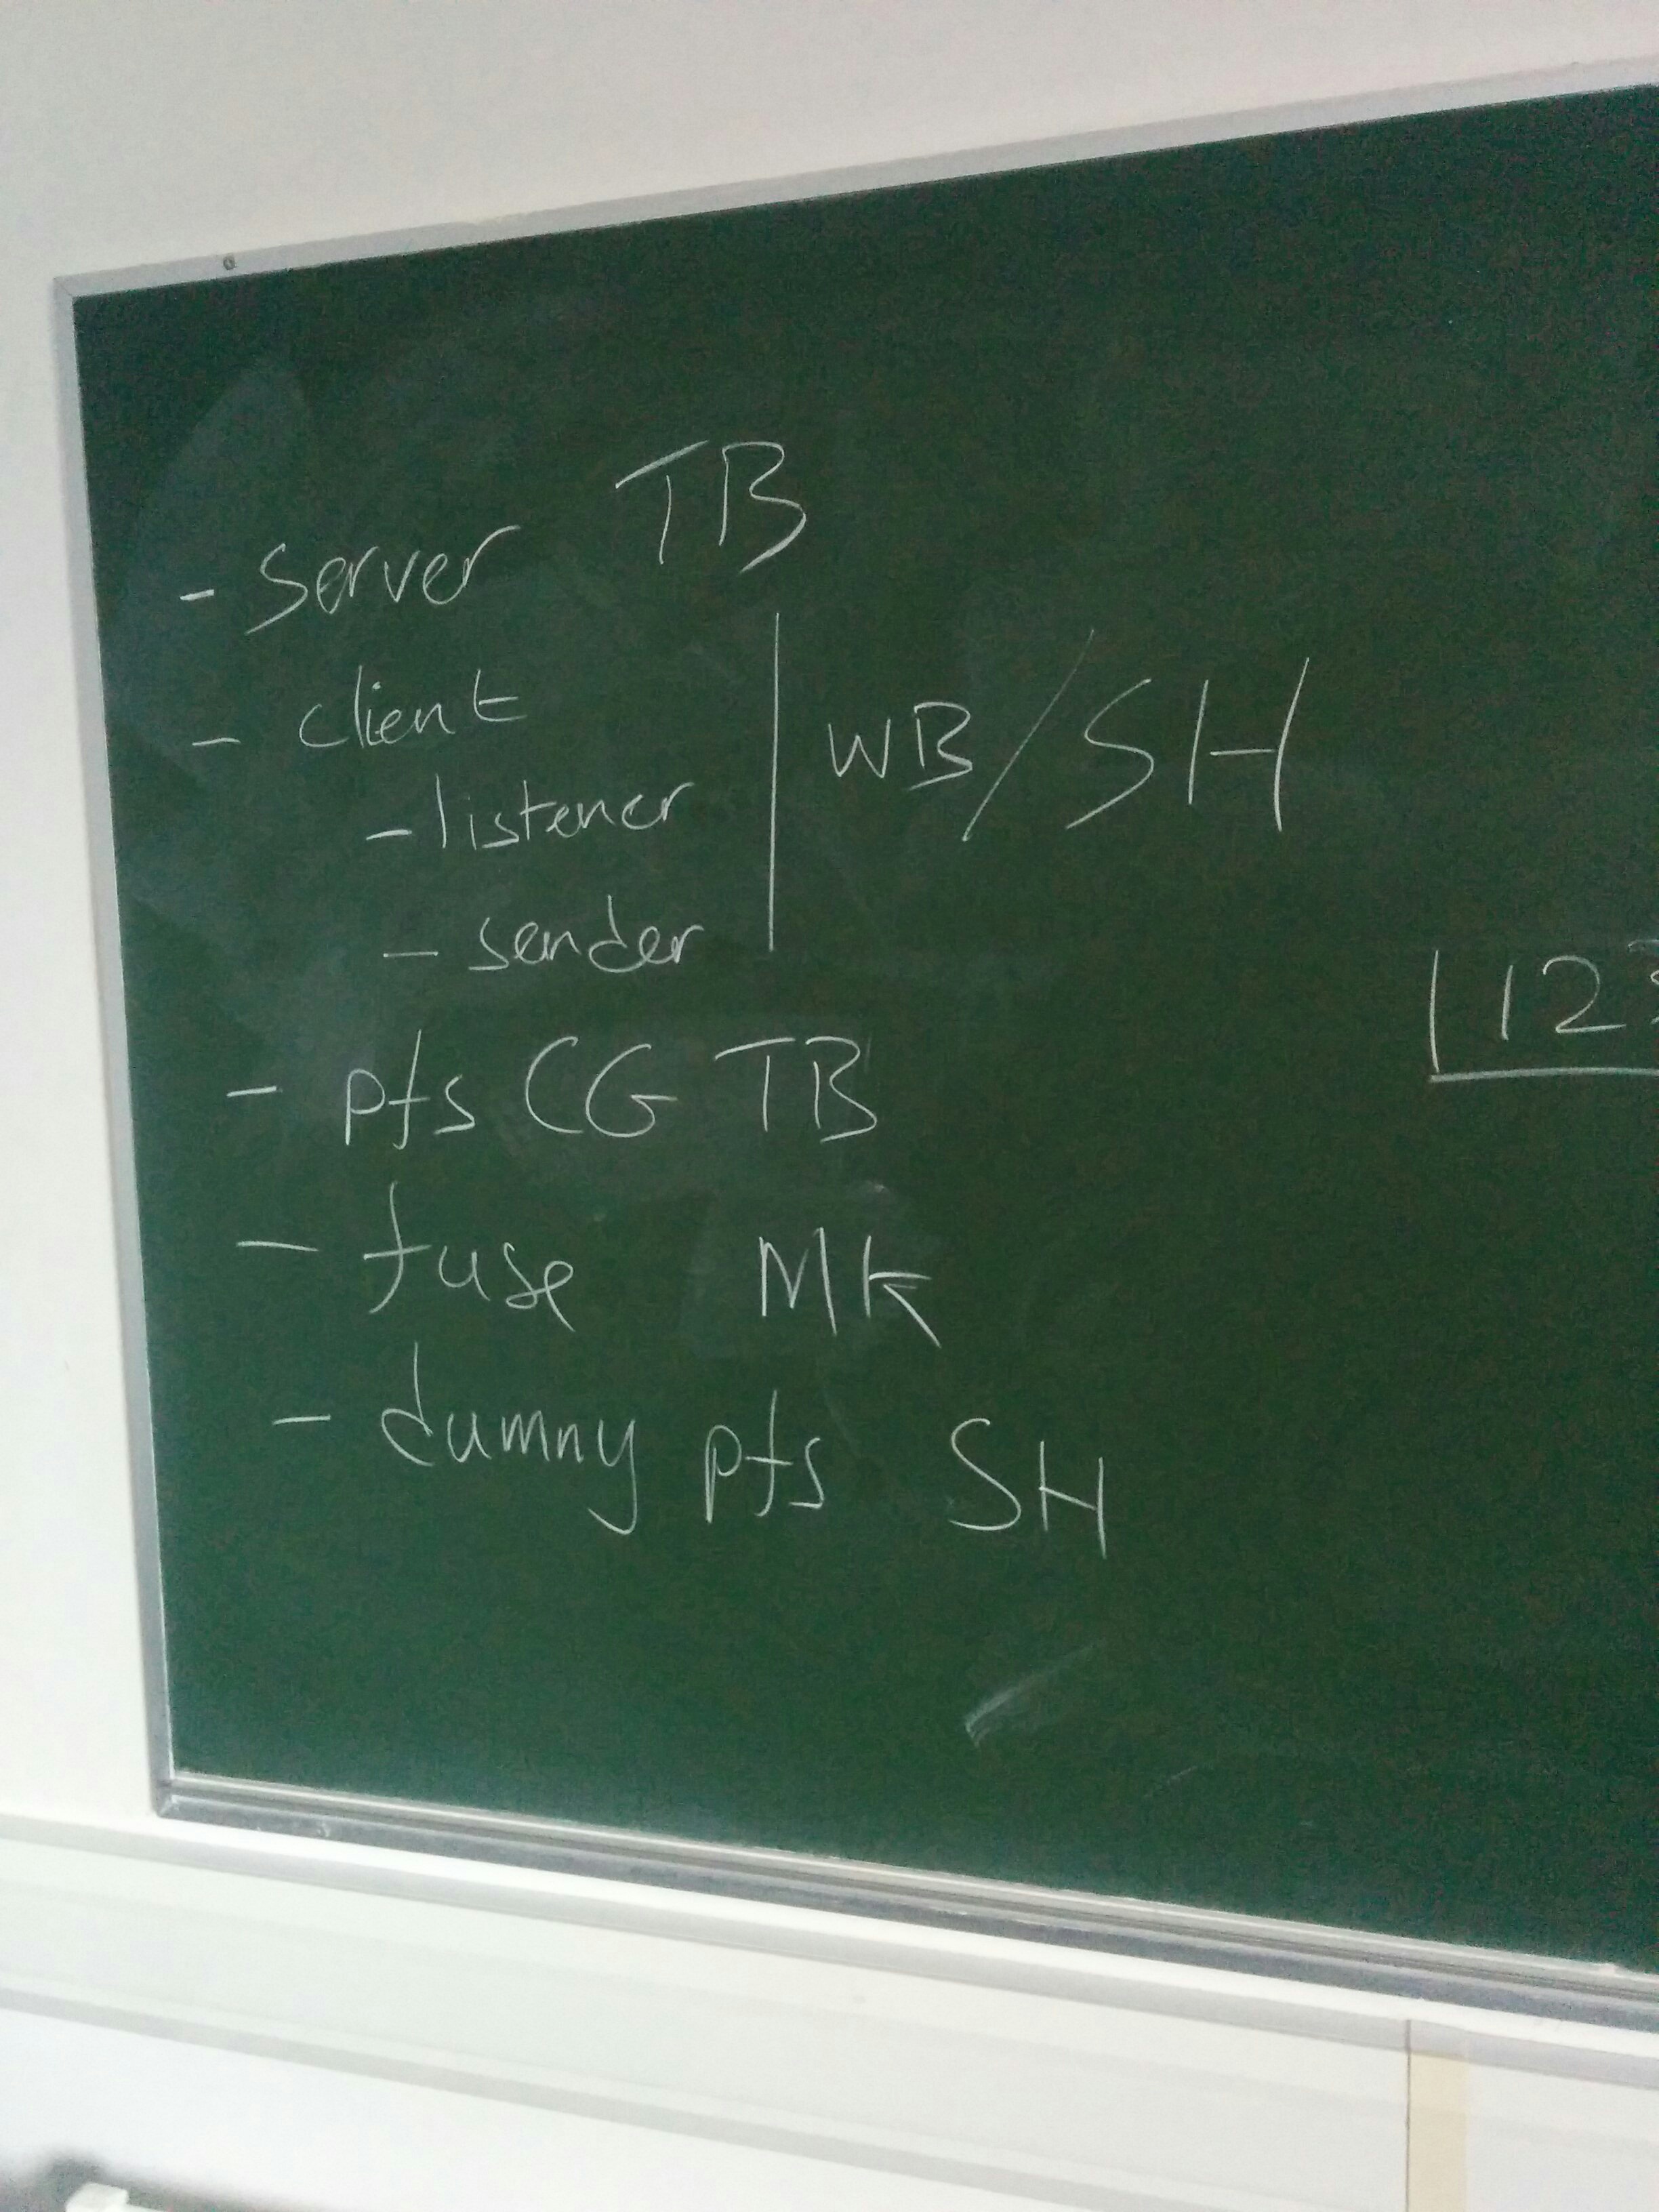 - server TB
- client
- listener
WB/SH
- sender
123
- pfs CG TB
- fuse MK
- dummy pfs SH